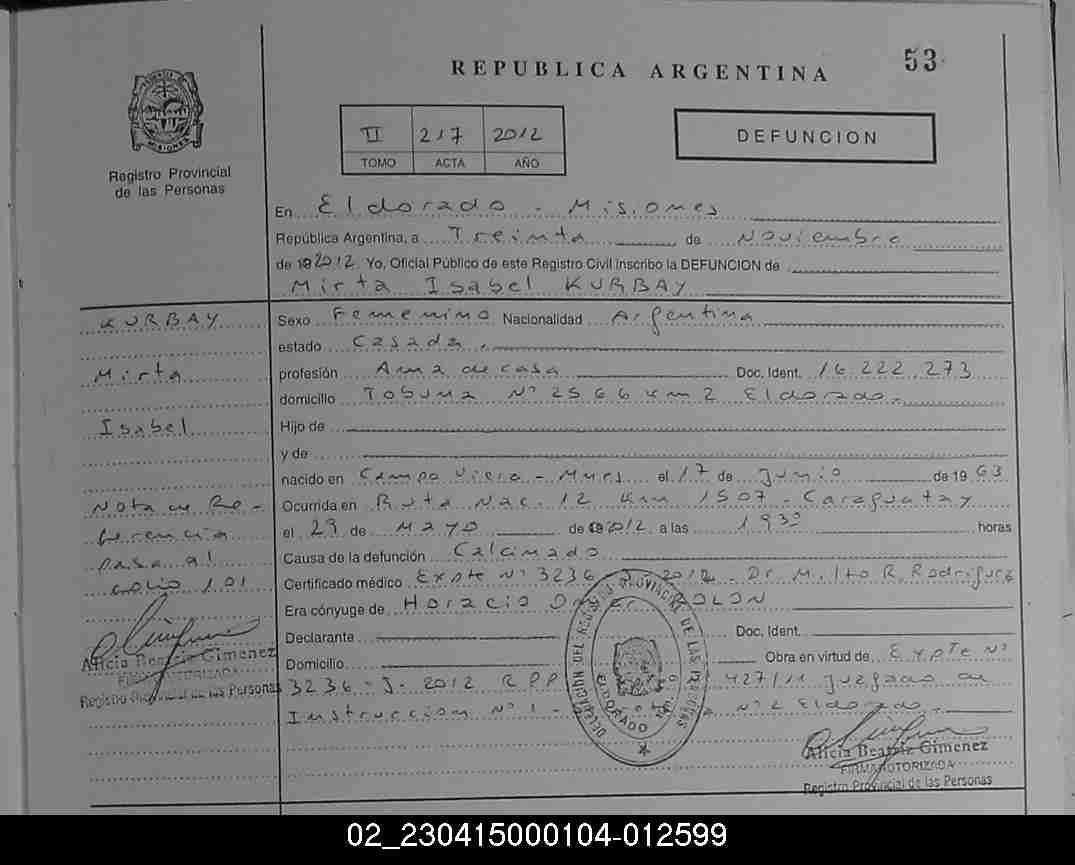 53
REPUBLICA ARGENTINA
II 217 2012
TOMO ACTA AÑO
DEFUNCION
Registro Provincial
de las Personas
En Eldorado - Misiones
República Argentina, a Treinta de Noviembre
de 192012 Yo, Oficial Público de este Registro Civil inscribo la DEFUNCION de
Mirta Isabel KURBAY
KURBAY
Mirta
Isabel
Nota de Re-
ferencia
pasa al
folio 101
Alicia Beatriz Gimenez
FIRMA AUTORIZADA
Registro Provincial de las Personas
Sexo Femenino Nacionalidad Argentina
estado Casada.
profesión Ama de casa Doc. Ident. 16.222.273
domicilio Tobuna Nº 2566 km 2 Eldorado.
Hijo de
y de
nacido en Campo Viera - Mnes el 17 de Junio de 1963
Ocurrida en Ruta Nac. 12 km 1507 - Caraguatay
el 29 de Mayo de 192012 a las 19:30 horas
Causa de la defunción Calcinado
Certificado médico Expte Nº 3236-J-2012 - Dr Milto R. Rodriguez
Era cónyuge de Horacio ROLON
Declarante Doc. Ident.
Domicilio Obra en virtud de Expte Nº
3236-J-2012 RPP 427/11 Juzgado de
Instruccion Nº 1 - Nº 2 Eldorado.
DELEGACIÓN DEL REGISTRO PROVINCIAL DE LAS PERSONAS
ELDORADO
Alicia Beatriz Gimenez
FIRMA AUTORIZADA
Registro Provincial de las Personas
02_230415000104-012599